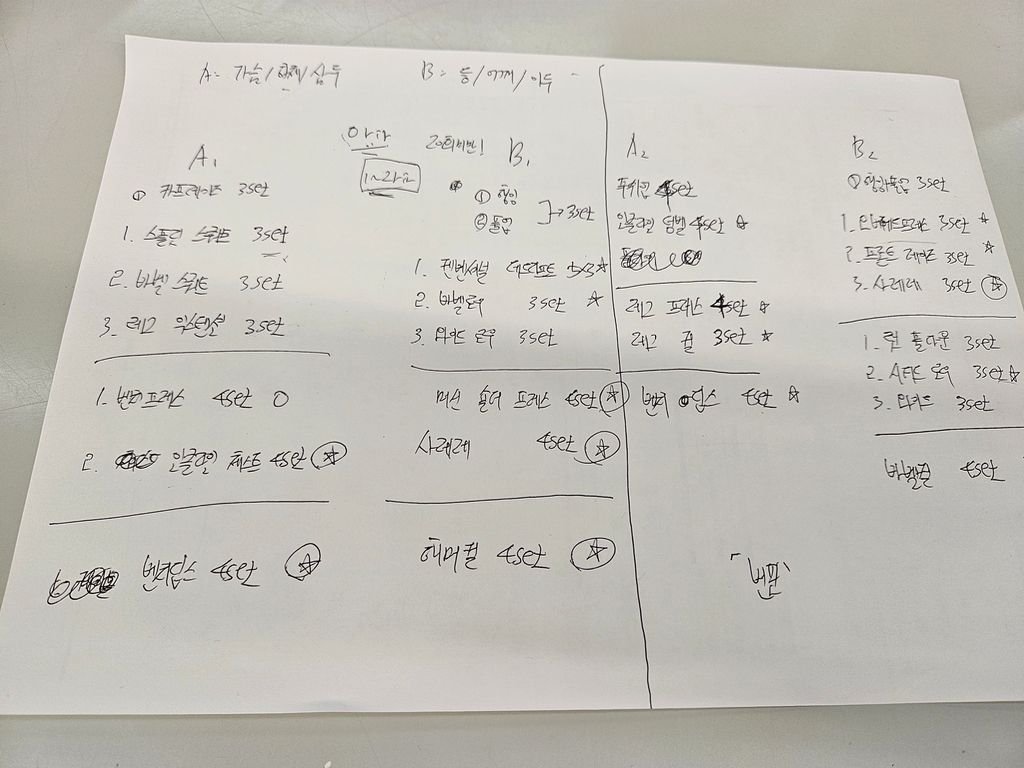 A= 가슴/하체/삼두
B= 등/어깨/이두
A1
① 카프레이즈 3set
1. 스플릿 스쿼트 3set
2. 바벨 스쿼트 3set
3. 레그 익스텐션 3set
1. 벤치프레스 4set
2. 인클라인 체스트 4set ☆
벤치딥스 4set ☆
1~2개
B1
① 행잉
② 풀업
→ 3set
1. 데드리프트 5x3 ☆
2. 바벨로우 3set ☆
3. 와이드 로우 3set
머신 숄더 프레스 4set ☆
사레레 4set ☆
해머컬 4set ☆
A2
푸쉬업 4set
인클라인 덤벨 4set ☆
레그 프레스 4set ☆
레그 컬 3set ☆
벤치 딥스 4set ☆
B2
① 행잉/풀업 3set
1. 오버헤드프레스 3set ☆
2. 프론트 레이즈 3set ☆
3. 사레레 3set ☆
1. 랫 풀다운 3set
2. 로우 3set ☆
3. 3set
바벨컬 4set